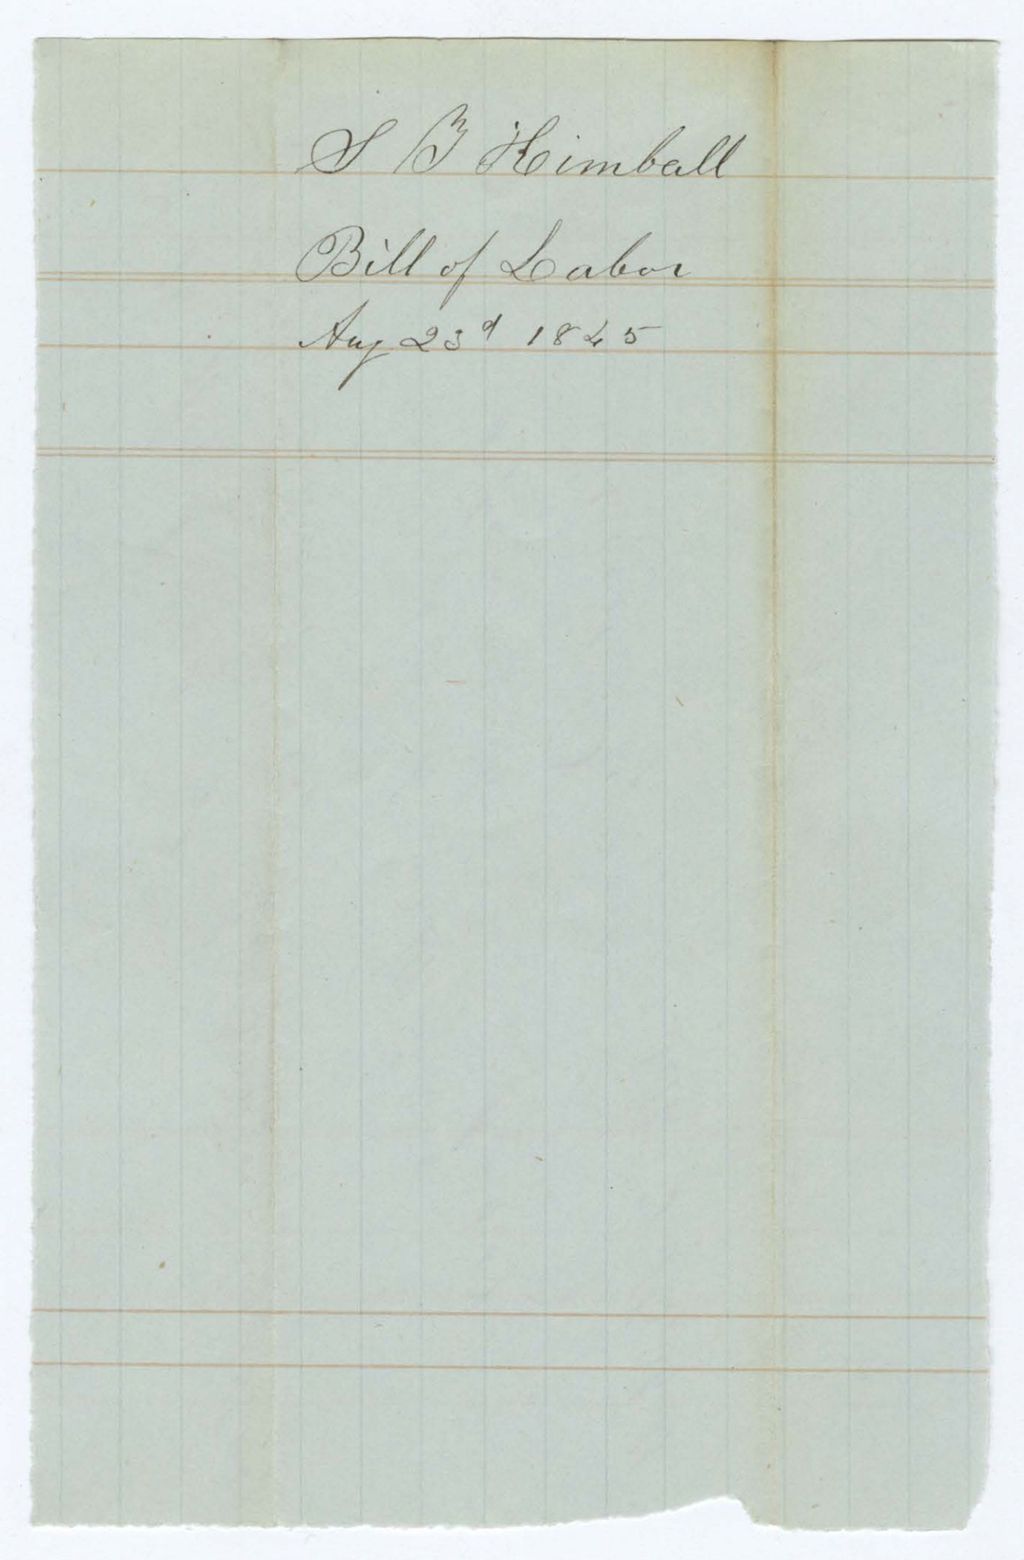 S B Kimball
Bill of Labor
Aug 23d 1865